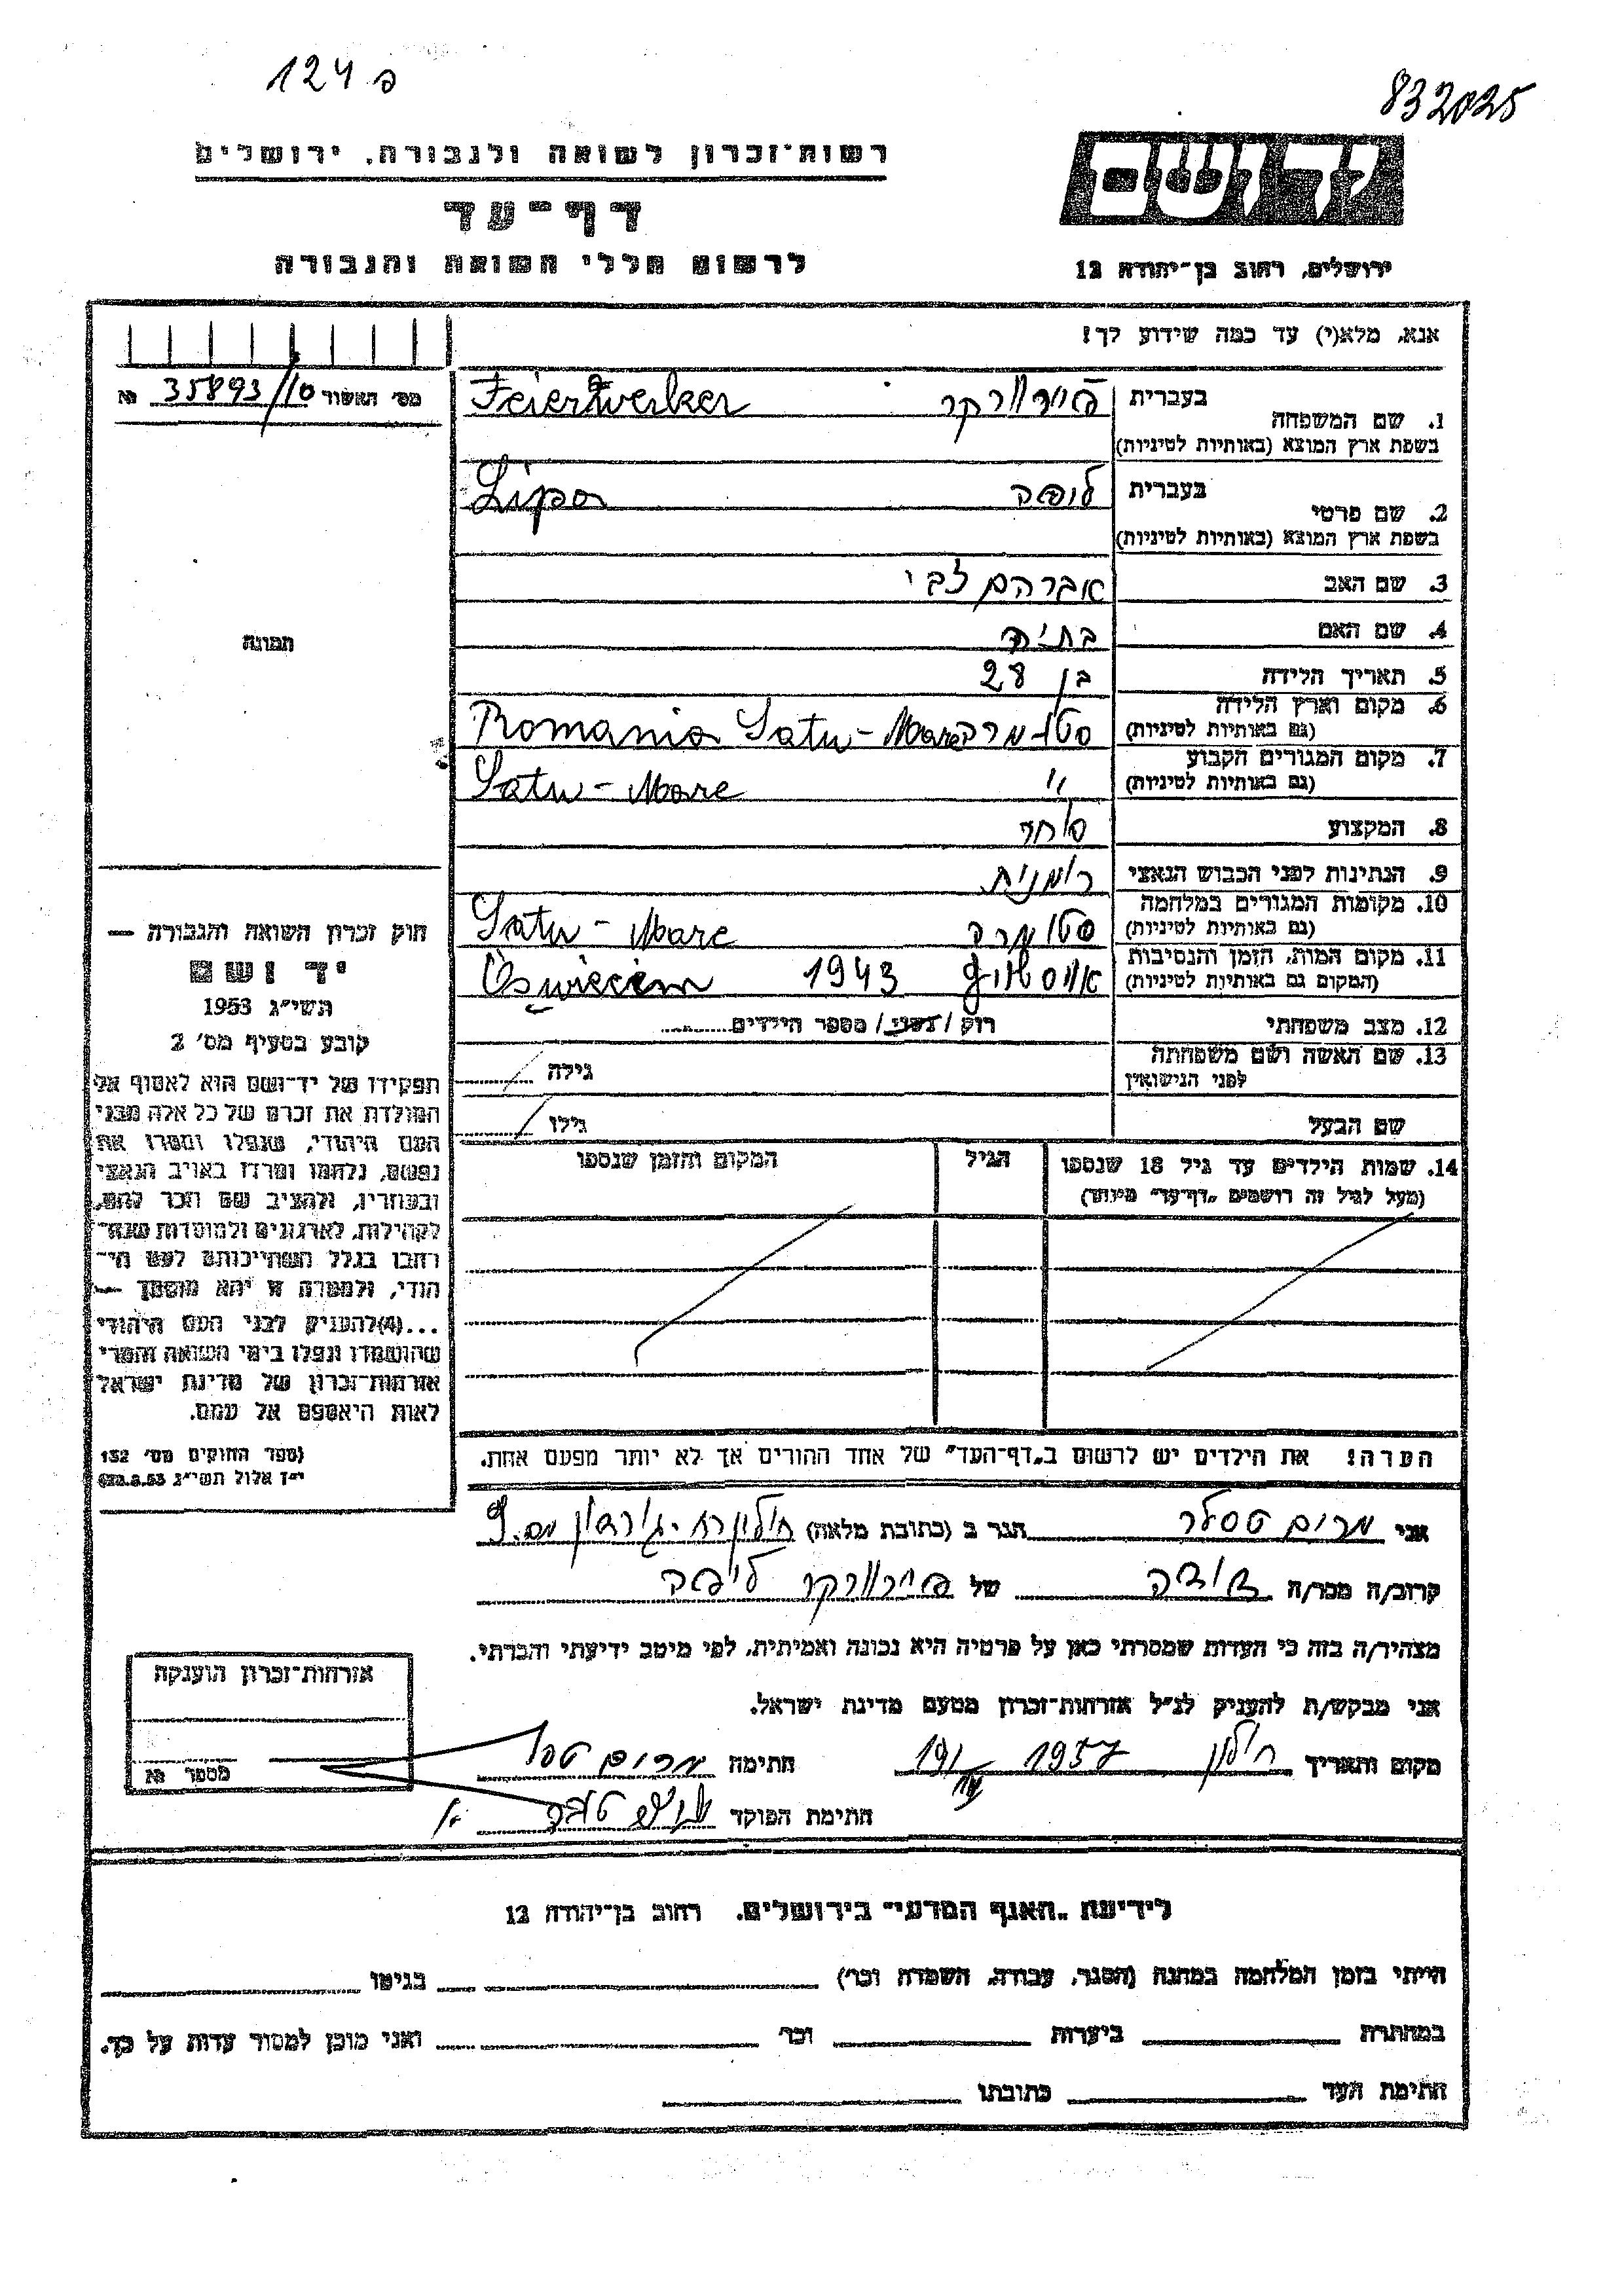 124 פ
832025
רשות־זכרון לשואה ולגבורה, ירושלים
דף־עד
לרשום חללי השואה והגבורה
יד ושם
ירושלים, רחוב בן־יהודה 12
אנא, מלא(י) עד כמה שידוע לך!
מס׳ האשור 35893/10 №
1. שם המשפחה
בעברית פיירוורקר Feierwerker
בשפת ארץ המוצא (באותיות לטיניות)
2. שם פרטי
בעברית ליפה Lipa
בשפת ארץ המוצא (באותיות לטיניות)
3. שם האב אברהם צבי
4. שם האם בתיה
5. תאריך הלידה בן 28
6. מקום וארץ הלידה סטו-מרה Romania Satu-Mare
(גם באותיות לטיניות)
7. מקום המגורים הקבוע " Satu-Mare
(גם באותיות לטיניות)
8. המקצוע סוחר
9. הנתינות לפני הכבוש הנאצי רומנית
10. מקומות המגורים במלחמה סטו מרה Satu-Mare
(גם באותיות לטיניות)
11. מקום המות, הזמן והנסיבות 1943 Oswiecim
(המקום גם באותיות לטיניות)
12. מצב משפחתי רוק / נשוי / מספר הילדים
13. שם האשה ושם משפחתה גילה
לפני הנישואין
שם הבעל גילו
14. שמות הילדים עד גיל 18 שנספו הגיל המקום והזמן שנספו
(מעל לגיל זה רושמים „דף־עד״ מיוחד)
הערה! את הילדים יש לרשום ב„דף־העד״ של אחד ההורים אך לא יותר מפעם אחת.
תמונה
חוק זכרון השואה והגבורה —
יד ושם
תשי״ג 1953
קובע בסעיף מס׳ 2
תפקידו של יד־ושם הוא לאסוף אל
המולדת את זכרם של כל אלה מבני
העם היהודי, שנפלו ומסרו את
נפשם, נלחמו ומרדו באויב הנאצי
ובעוזריו, ולהציב שם וזכר להם,
לקהילות, לארגונים ולמוסדות שנח־
רבו בגלל השתייכותם לעם הי־
הודי, ולמטרה זו יהא מוסמך —
...(4)להעניק לבני העם היהודי
שהושמדו ונפלו בימי השואה והמרי
אזרחות־זכרון של מדינת ישראל
לאות היאספם אל עמם.
(ספר החוקים מס׳ 132
י״ז אלול תשי״ג 28.8.53)
אני מרים הגר ב (כתובת מלאה)
קרוב/ה מכר/ה דודה של פיירוורקר ליפה
מצהיר/ה בזה כי העדות שמסרתי כאן על פרטיה היא נכונה ואמיתית, לפי מיטב ידיעתי והכרתי.
אני מבקש/ת להעניק לנ״ל אזרחות־זכרון מטעם מדינת ישראל.
מקום ותאריך חולון 1957 חתימה מרים
חתימת הפוקד
אזרחות־זכרון הוענקה
מספר №
לידיעת „האגף המדעי״ בירושלים, רחוב בן־יהודה 12
הייתי בזמן המלחמה במחנה (הסגר, עבודה, השמדה וכו׳) בגיטו
במחתרת ביערות וכו׳ ואני מוכן למסור עדות על כך.
חתימת העד כתובתו